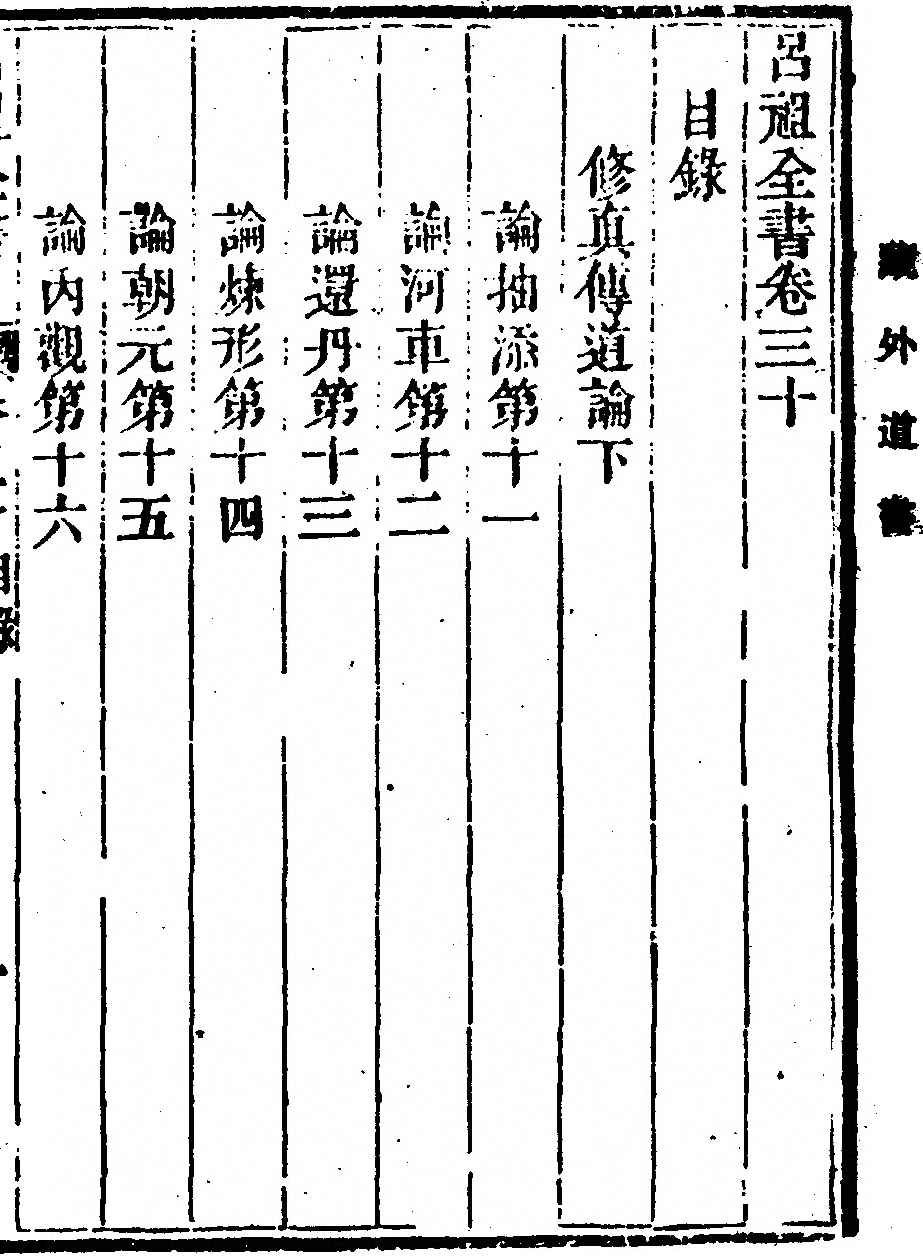 藏外道書
呂祖全書卷三十
目錄
修真傳道論下
論抽添第十一
論河車第十二
論還丹第十三
論煉形第十四
論朝元第十五
論內觀第十六